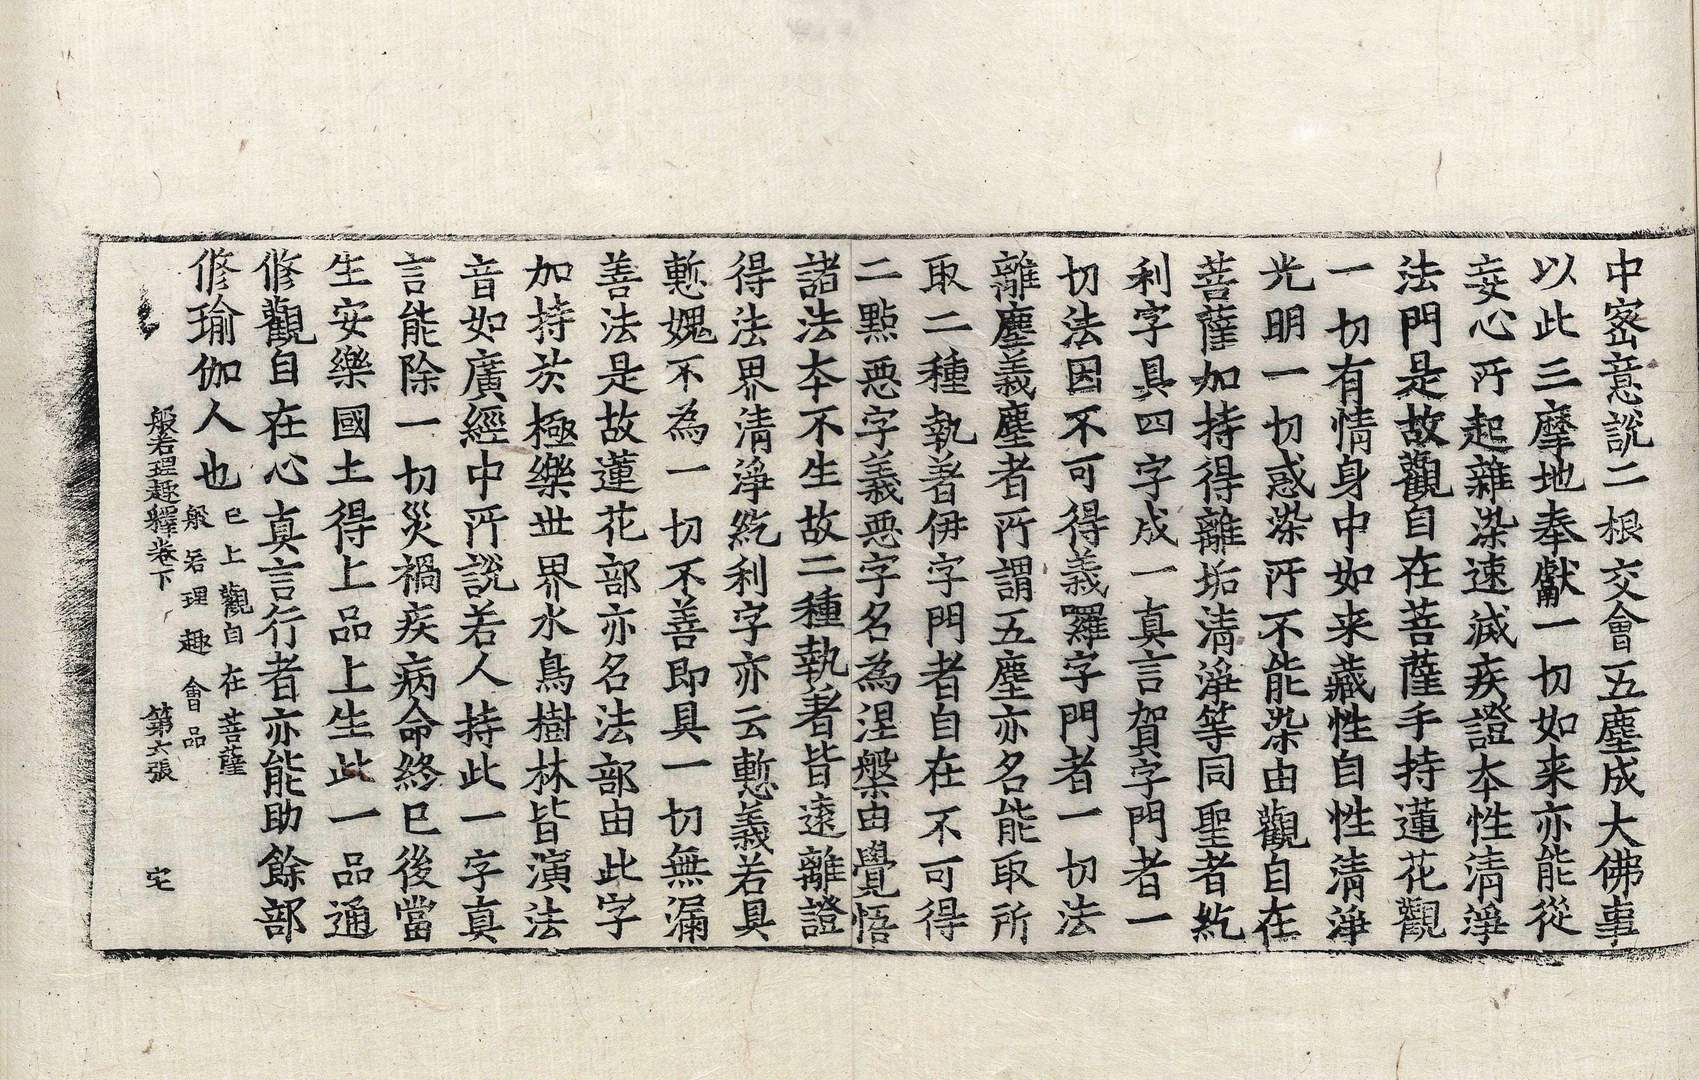 中密意說二根交會五塵成大佛事
以此三摩地奉獻一切如来亦能從
妄心所起雜染速滅疾證本性清淨
法門是故觀自在菩薩手持蓮花觀
一切有情身中如来藏性自性清淨
光明一切惑染所不能染由觀自在
菩薩加持得離垢清淨等同聖者紇
利字具四字成一真言賀字門者一
切法因不可得義囉字門者一切法
離塵義塵者所謂五塵亦名能取所
取二種執著伊字門者自在不可得
二點惡字義惡字名為涅槃由覺悟
諸法本不生故二種執著皆遠離證
得法界清淨紇利字亦云慙義若具
慙媿不為一切不善即具一切無漏
善法是故蓮花部亦名法部由此字
加持於極樂世界水鳥樹林皆演法
音如廣經中所說若人持此一字真
言能除一切災禍疾病命終已後當
生安樂國土得上品上生此一品通
修觀自在心真言行者亦能助餘部
修瑜伽人也
已上觀自在菩薩
般若理趣會品
般若理趣釋卷下 第六張 宅